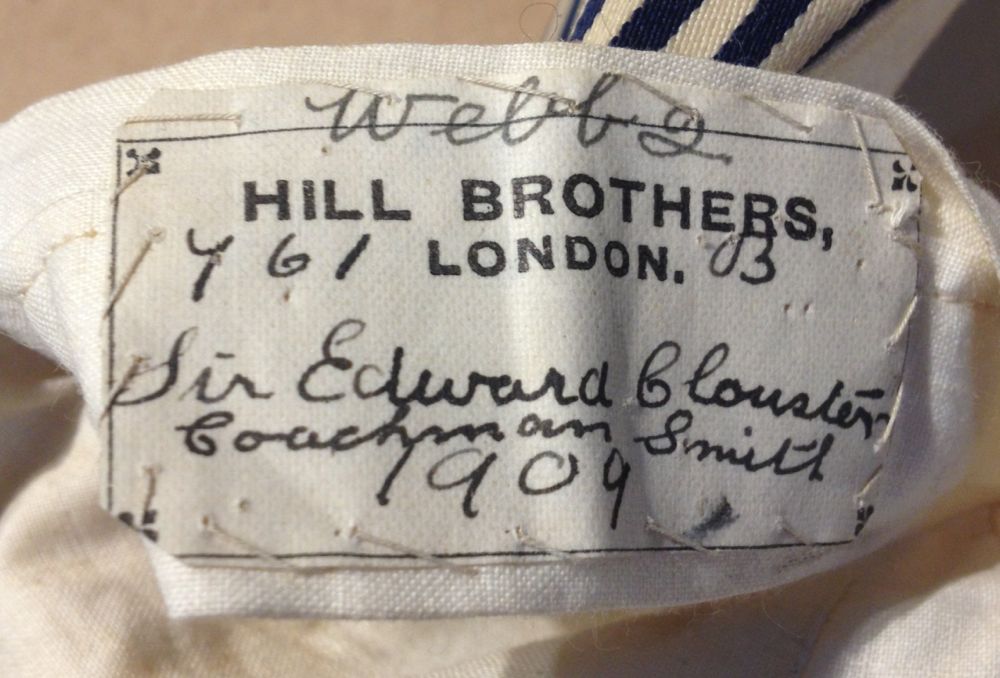 Webb 2
HILL BROTHERS,
461 LONDON. 03
Sir Edward Clousten
Coachman Smith
1909